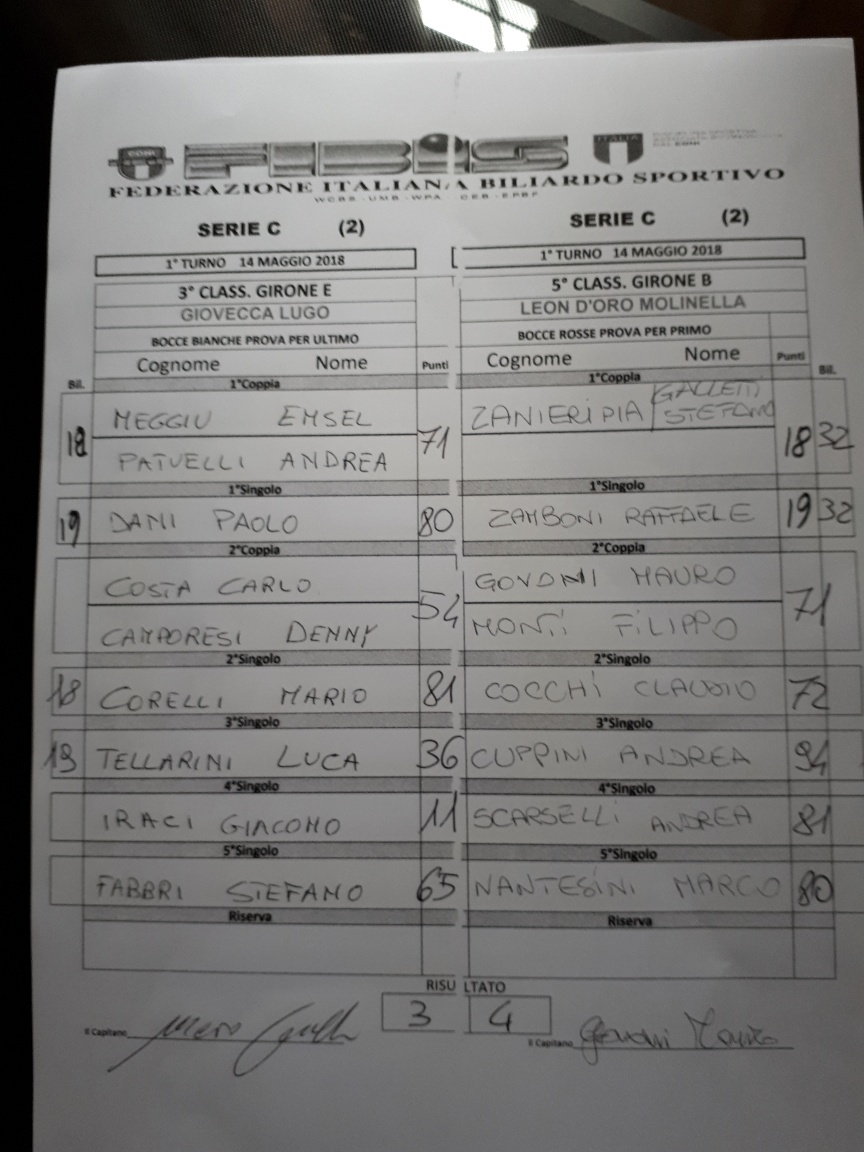 FIBIS
FEDERAZIONE ITALIANA BILIARDO SPORTIVO
WCBS - UMB - WPA - CEB - EPBF
SERIE C (2) SERIE C (2)
1° TURNO 14 MAGGIO 2018 1° TURNO 14 MAGGIO 2018
3° CLASS. GIRONE E 5° CLASS. GIRONE B
GIOVECCA LUGO LEON D'ORO MOLINELLA
BOCCE BIANCHE PROVA PER ULTIMO BOCCE ROSSE PROVA PER PRIMO
Cognome Nome Punti Cognome Nome Punti
Bil. 1°Coppia 1°Coppia Bil.
18 MEGGIU EMSEL 71 ZANIERI PIA GALLETTI STEFANO 18 32
PATUELLI ANDREA
1°Singolo 1°Singolo
19 DANI PAOLO 80 ZAMBONI RAFFAELE 19 32
2°Coppia 2°Coppia
COSTA CARLO 54 GOVONI MAURO 71
CAMPORESI DENNY MONTI FILIPPO
2°Singolo 2°Singolo
18 CORELLI MARIO 81 COCCHI CLAUDIO 72
3°Singolo 3°Singolo
19 TELLARINI LUCA 36 CUPPINI ANDREA 94
4°Singolo 4°Singolo
IRACI GIACOMO 11 SCARSELLI ANDREA 81
5°Singolo 5°Singolo
FABBRI STEFANO 65 NANTESINI MARCO 80
Riserva Riserva
RISULTATO
3 4
Il Capitano Il Capitano Govoni Mauro